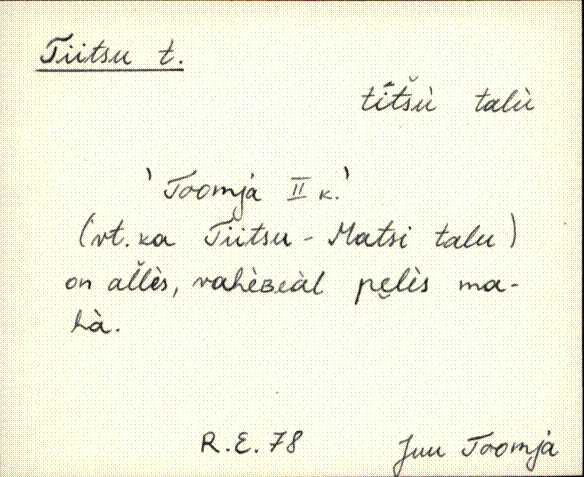 Tiitsu t.
tītšù talù
'Toomja II k.'
(vt. ka Tiitsu - Matsi talu)
on allès, vahèʙeàl pe̮lès ma-
hà.
R.E. 78 Juu Toomja